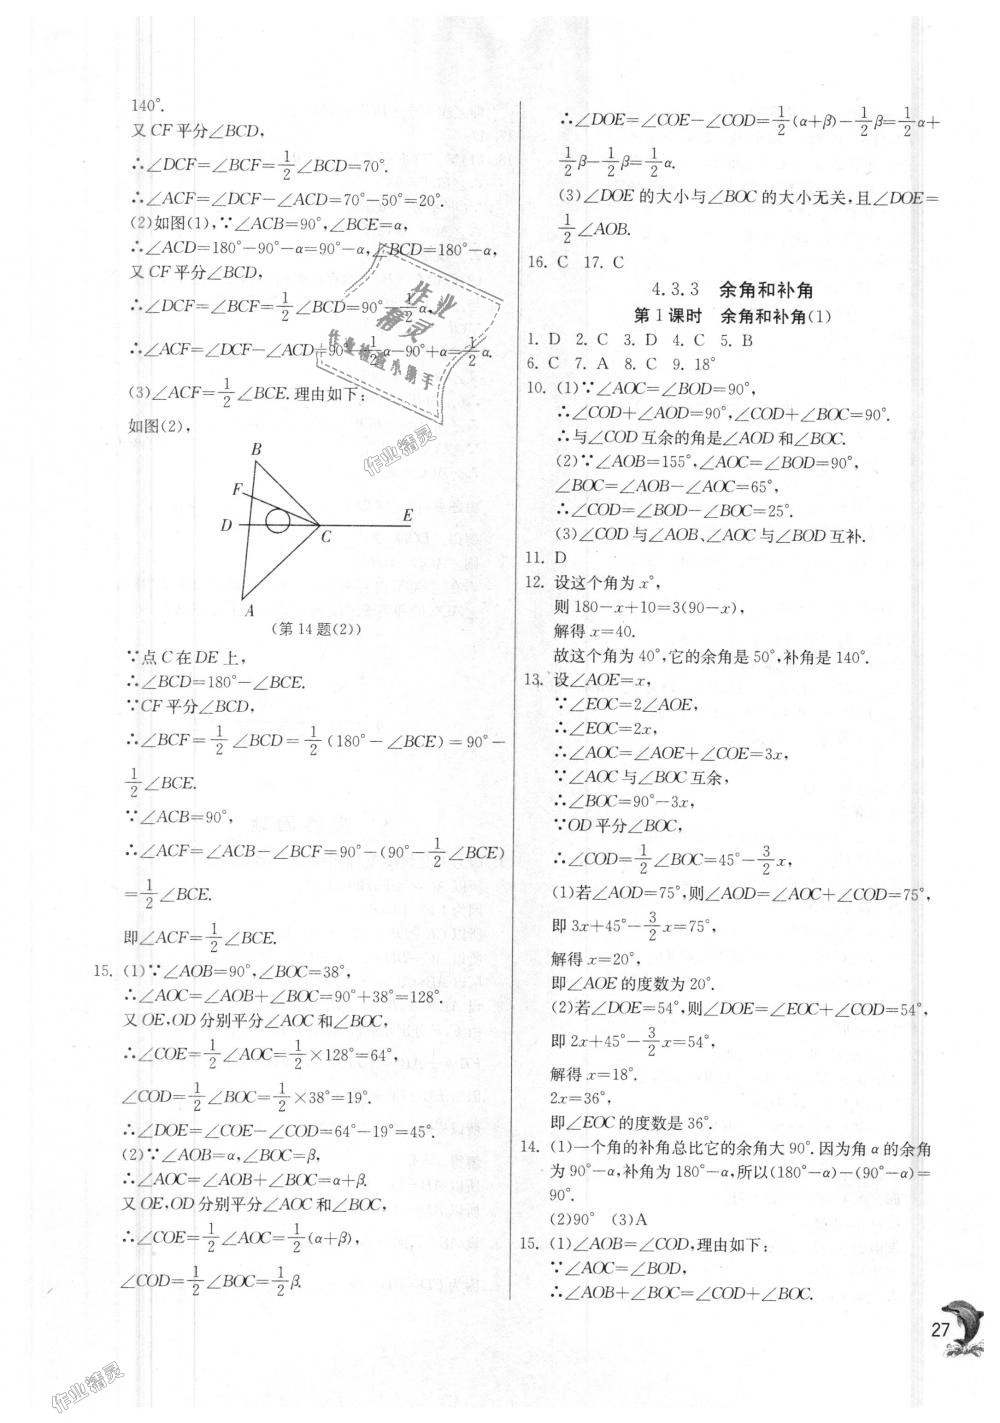 140°.
又CF平分∠BCD,
∴∠DCF=∠BCF=1/2∠BCD=70°.
∴∠ACF=∠DCF-∠ACD=70°-50°=20°.
(2)如图(1),∵∠ACB=90°,∠BCE=α,
∴∠ACD=180°-90°-α=90°-α,∠BCD=180°-α,
又CF平分∠BCD,
∴∠DCF=∠BCF=1/2∠BCD=90°-1/2α,
∴∠ACF=∠DCF-∠ACD=90°-1/2α-90°+α=1/2α.
(3)∠ACF=1/2∠BCE.理由如下:
如图(2),
B
F
D
E
C
A
(第14题(2))
∵点C在DE上,
∴∠BCD=180°-∠BCE.
∵CF平分∠BCD,
∴∠BCF=1/2∠BCD=1/2(180°-∠BCE)=90°-
1/2∠BCE.
∵∠ACB=90°,
∴∠ACF=∠ACB-∠BCF=90°-(90°-1/2∠BCE)
=1/2∠BCE.
即∠ACF=1/2∠BCE.
15. (1)∵∠AOB=90°,∠BOC=38°,
∴∠AOC=∠AOB+∠BOC=90°+38°=128°.
又OE,OD分别平分∠AOC和∠BOC,
∴∠COE=1/2∠AOC=1/2×128°=64°,
∠COD=1/2∠BOC=1/2×38°=19°.
∴∠DOE=∠COE-∠COD=64°-19°=45°.
(2)∵∠AOB=α,∠BOC=β,
∴∠AOC=∠AOB+∠BOC=α+β.
又OE,OD分别平分∠AOC和∠BOC,
∴∠COE=1/2∠AOC=1/2(α+β),
∠COD=1/2∠BOC=1/2β.
∴∠DOE=∠COE-∠COD=1/2(α+β)-1/2β=1/2α+
1/2β-1/2β=1/2α.
(3)∠DOE的大小与∠BOC的大小无关,且∠DOE=
1/2∠AOB.
16. C 17. C
4.3.3 余角和补角
第1课时 余角和补角(1)
1. D 2. C 3. D 4. C 5. B
6. C 7. A 8. C 9. 18°
10. (1)∵∠AOC=∠BOD=90°,
∴∠COD+∠AOD=90°,∠COD+∠BOC=90°.
∴与∠COD互余的角是∠AOD和∠BOC.
(2)∵∠AOB=155°,∠AOC=∠BOD=90°,
∠BOC=∠AOB-∠AOC=65°,
∴∠COD=∠BOD-∠BOC=25°.
(3)∠COD与∠AOB、∠AOC与∠BOD互补.
11. D
12. 设这个角为x°,
则180-x+10=3(90-x),
解得x=40.
故这个角为40°,它的余角是50°,补角是140°.
13. 设∠AOE=x,
∵∠EOC=2∠AOE,
∴∠EOC=2x,
∴∠AOC=∠AOE+∠COE=3x,
∵∠AOC与∠BOC互余,
∴∠BOC=90°-3x,
∵OD平分∠BOC,
∴∠COD=1/2∠BOC=45°-3/2x,
(1)若∠AOD=75°,则∠AOD=∠AOC+∠COD=75°,
即3x+45°-3/2x=75°,
解得x=20°,
即∠AOE的度数为20°.
(2)若∠DOE=54°,则∠DOE=∠EOC+∠COD=54°,
即2x+45°-3/2x=54°,
解得x=18°.
2x=36°,
即∠EOC的度数是36°.
14. (1)一个角的补角总比它的余角大90°.因为角α的余角
为90°-α,补角为180°-α,所以(180°-α)-(90°-α)=
90°.
(2)90° (3)A
15. (1)∠AOB=∠COD,理由如下:
∵∠AOC=∠BOD,
∴∠AOB+∠BOC=∠COD+∠BOC.
27
作业
精灵
作业检查小助手
作业精灵
作业精灵